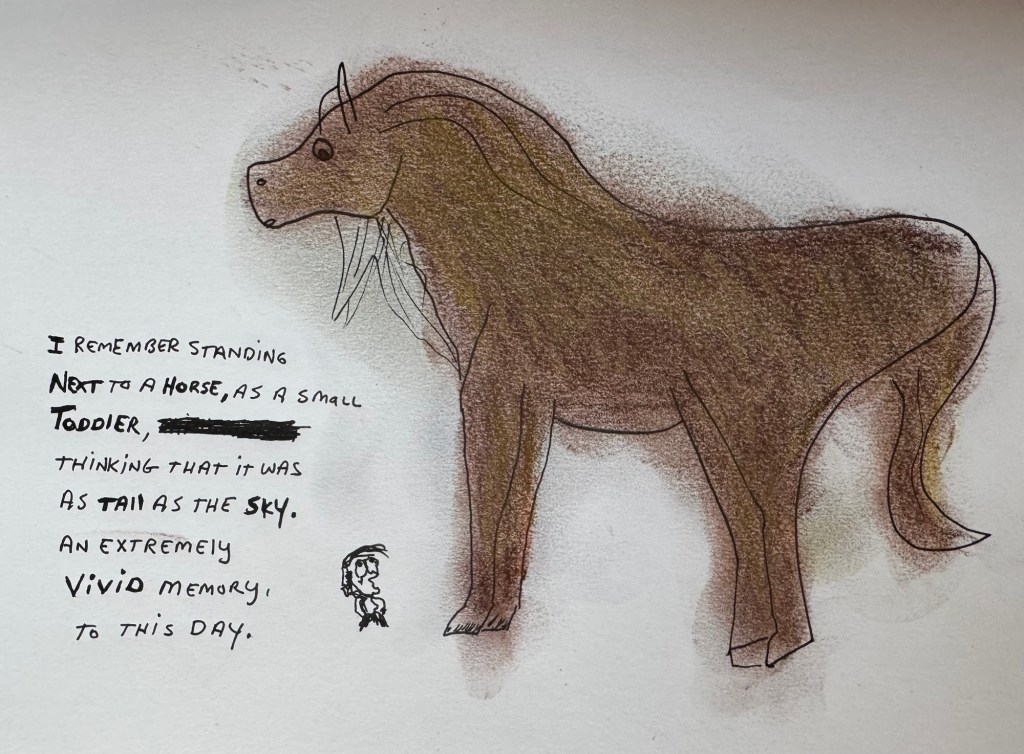 I REMEMBER STANDING
NEXT TO A HORSE, AS A SMALL
TODDLER,
THINKING THAT IT WAS
AS TAll AS THE SKY.
AN EXTREMELY
ViViD MEMORY,
TO THIS DAY.